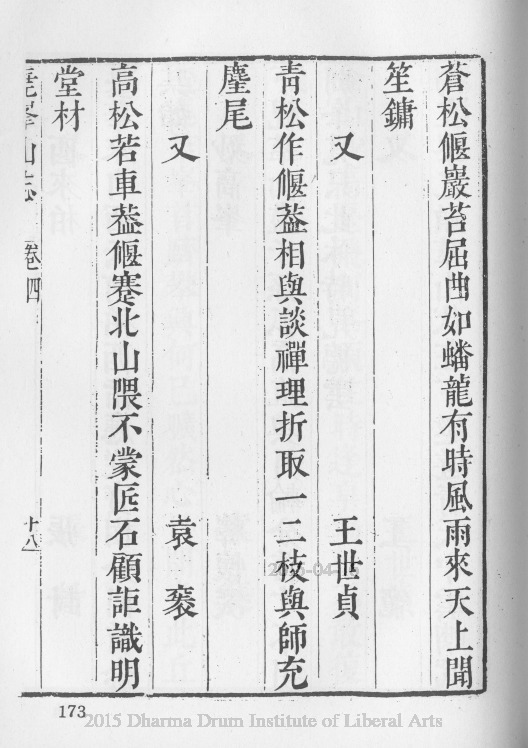 蒼松偃巖苔屈曲如蟠龍有時風雨來天上聞
笙鏞
又 王世貞
靑松作偃葢相與談禪理折取一二枝與師充
麈尾
又 袁袠
高松若車葢偃蹇北山隈不蒙匠石顧詎識明
堂材
山志 卷四 十八
173
2015 Dharma Drum Institute of Liberal Arts